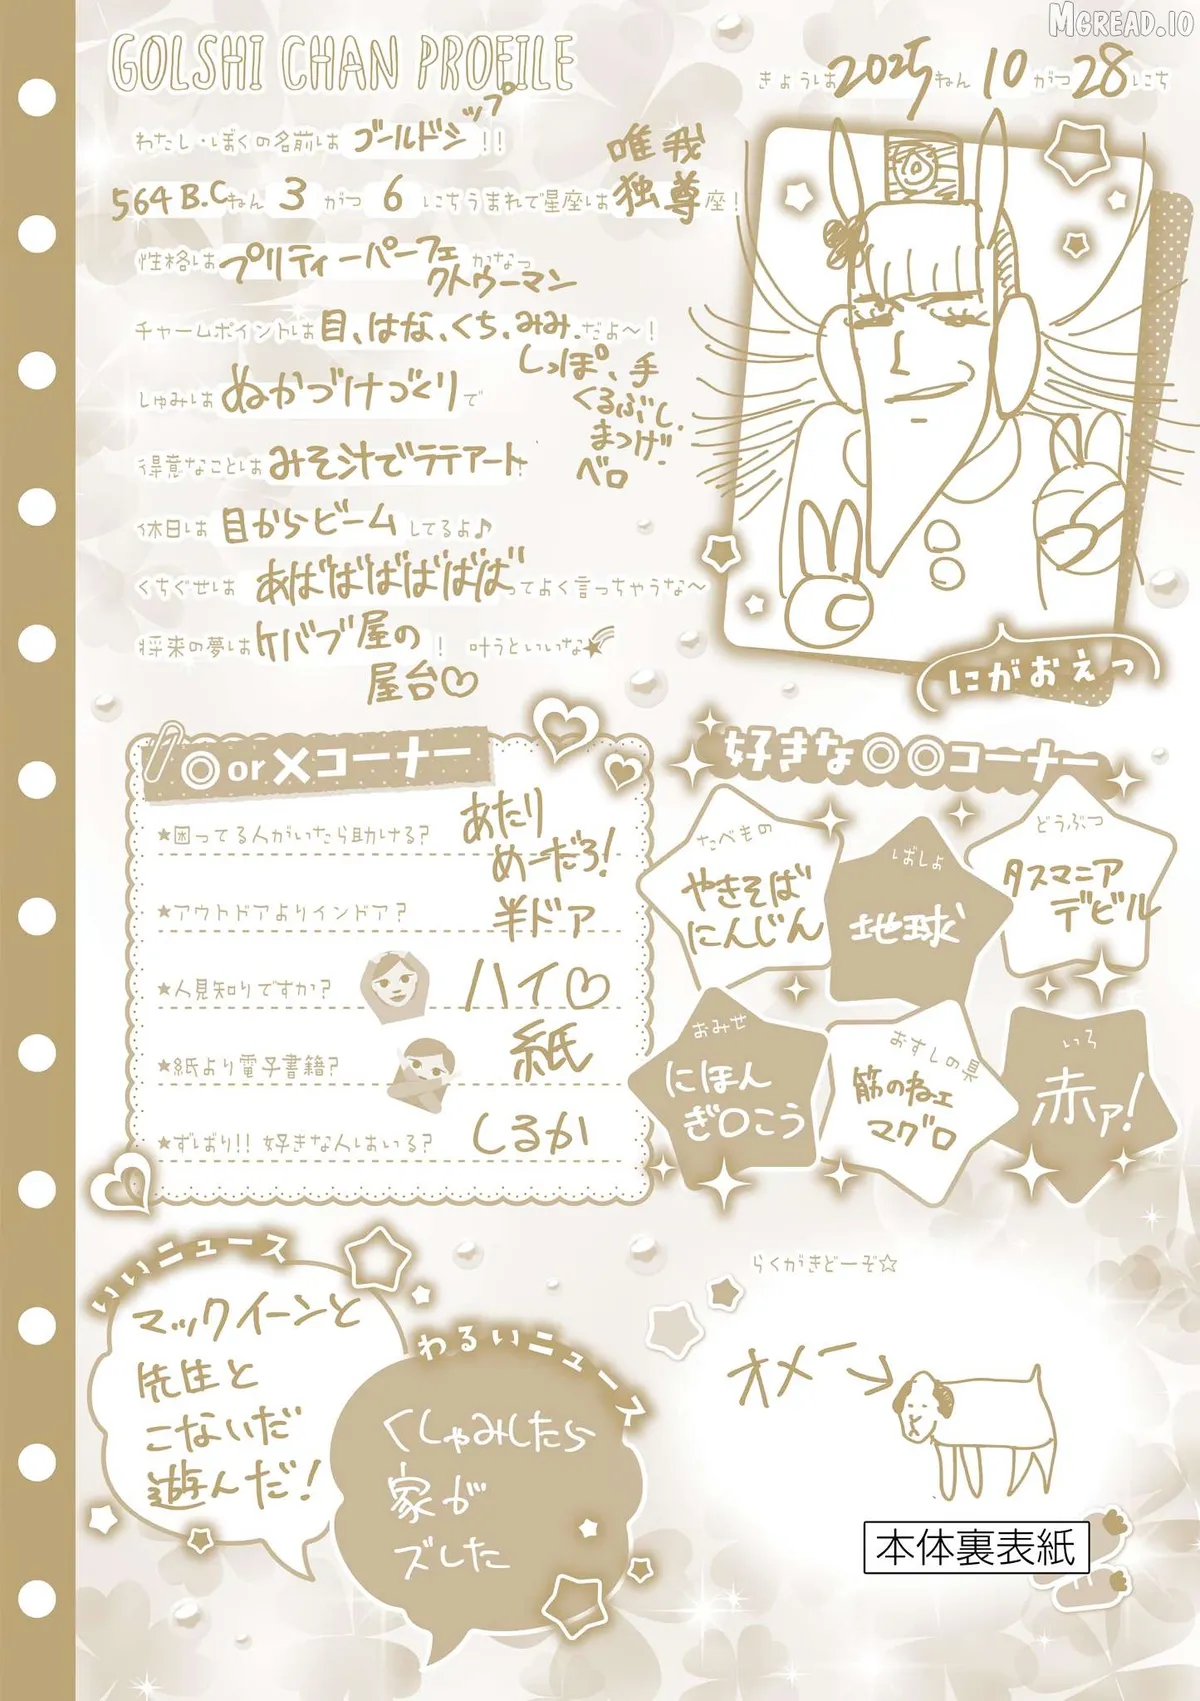 MGREAD.IO
GOLSHI CHAN PROFILE
きょうは2025ねん10がつ28にち
わたし・ぼくの名前はゴールドシップ!!
564B.Cねん3がつ6にちうまれで星座は唯我独尊座!
性格はプリティーパーフェクトウーマンかなっ
チャームポイントは目、はな、くち、みみ、だよ〜!
しっぽ、手
くるぶし、
まつげ、
ベロ
しゅみはぬかづけづくりで
得意なことはみそ汁でラテアート!
休日は目からビームしてるよ♪
くちぐせはあばばばばばばってよく言っちゃうな〜
将来の夢はケバブ屋の屋台♡! 叶うといいな
にがおえっ
◎or×コーナー
★困ってる人がいたら助ける?
あたり
めーだろ!
★アウトドアよりインドア?
半ドア
★人見知りですか?
ハイ♡
★紙より電子書籍?
紙
★ずばり!! 好きな人はいる?
しるか
好きな○○コーナー
たべもの
やきそば
にんじん
ばしょ
地球
どうぶつ
タスマニア
デビル
おみせ
にほん
ぎ○こう
おすしの具
筋のねェ
マグロ
いろ
赤ァ!
いいニュース
マックイーンと
先生と
こないだ
遊んだ!
わるいニュース
くしゃみしたら
家が
ズレた
らくがきどーぞ☆
オメー→
本体裏表紙